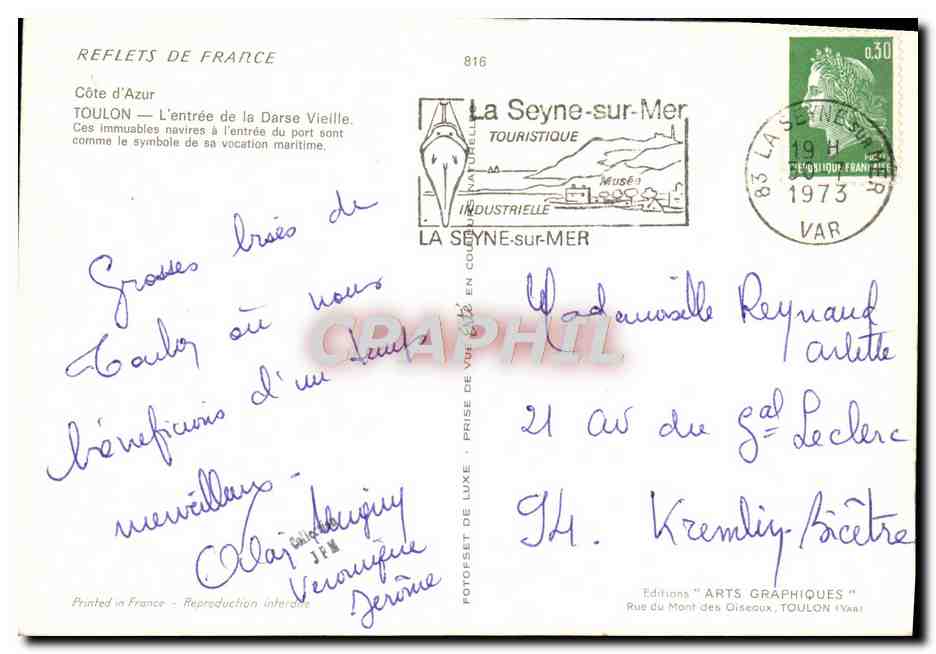 REFLETS DE FRANCE
816
Côte d'Azur
TOULON — L'entrée de la Darse Vieille.
Ces immuables navires à l'entrée du port sont
comme le symbole de sa vocation maritime.
La Seyne-sur-Mer
TOURISTIQUE
Musée
INDUSTRIELLE
LA SEYNE-sur-MER
0,30
REPUBLIQUE FRANÇAISE
83 LA SEYNE SUR MER
19 H
1973
VAR
Grosses bises de
Toulon où nous
bénéficions d'un temps
merveilleux -
Véronique
Jérôme
Collection
JFM
CPAPHIL
PHOTOFSET DE LUXE - PRISE DE VUE EN COULEURS NATURELLES
Mademoiselle Reynaud
Arlette
21 av du Gal Leclerc
94. Kremlin-Bicêtre
Printed in France - Reproduction interdite
Editions "ARTS GRAPHIQUES"
Rue du Mont des Oiseaux, TOULON (VAR)